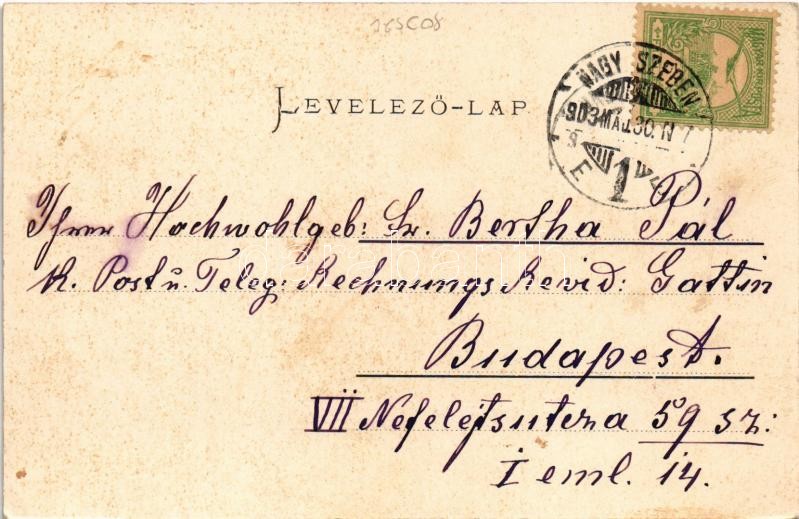 LEVELEZŐ-LAP
NAGY SZEBEN
903 MÁJ 30. N 7
1
Ihrer Hochwohlgeb: Fr. Bertha Pál
K. Post u. Teleg: Rechnungs Revid: Gattin
Budapest.
VII Nefelejtsutcza 59 sz:
I eml. 14.